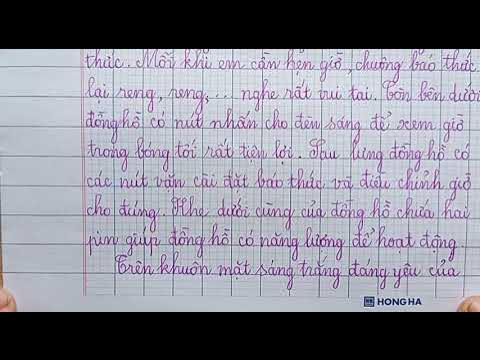 thức. Mỗi khi em cần hẹn giờ, chuông báo thức
lại reng, reng,... nghe rất vui tai. Còn bên dưới
đồng hồ có nút nhấn cho đèn sáng để xem giờ
trong bóng tối rất tiện lợi. Sau lưng đồng hồ có
các nút vặn cài đặt báo thức và điều chỉnh giờ
cho đúng. Khe dưới cùng của đồng hồ chứa hai
pin giúp đồng hồ có năng lượng để hoạt động.
Trên khuôn mặt sáng trắng đáng yêu của
HONG HA